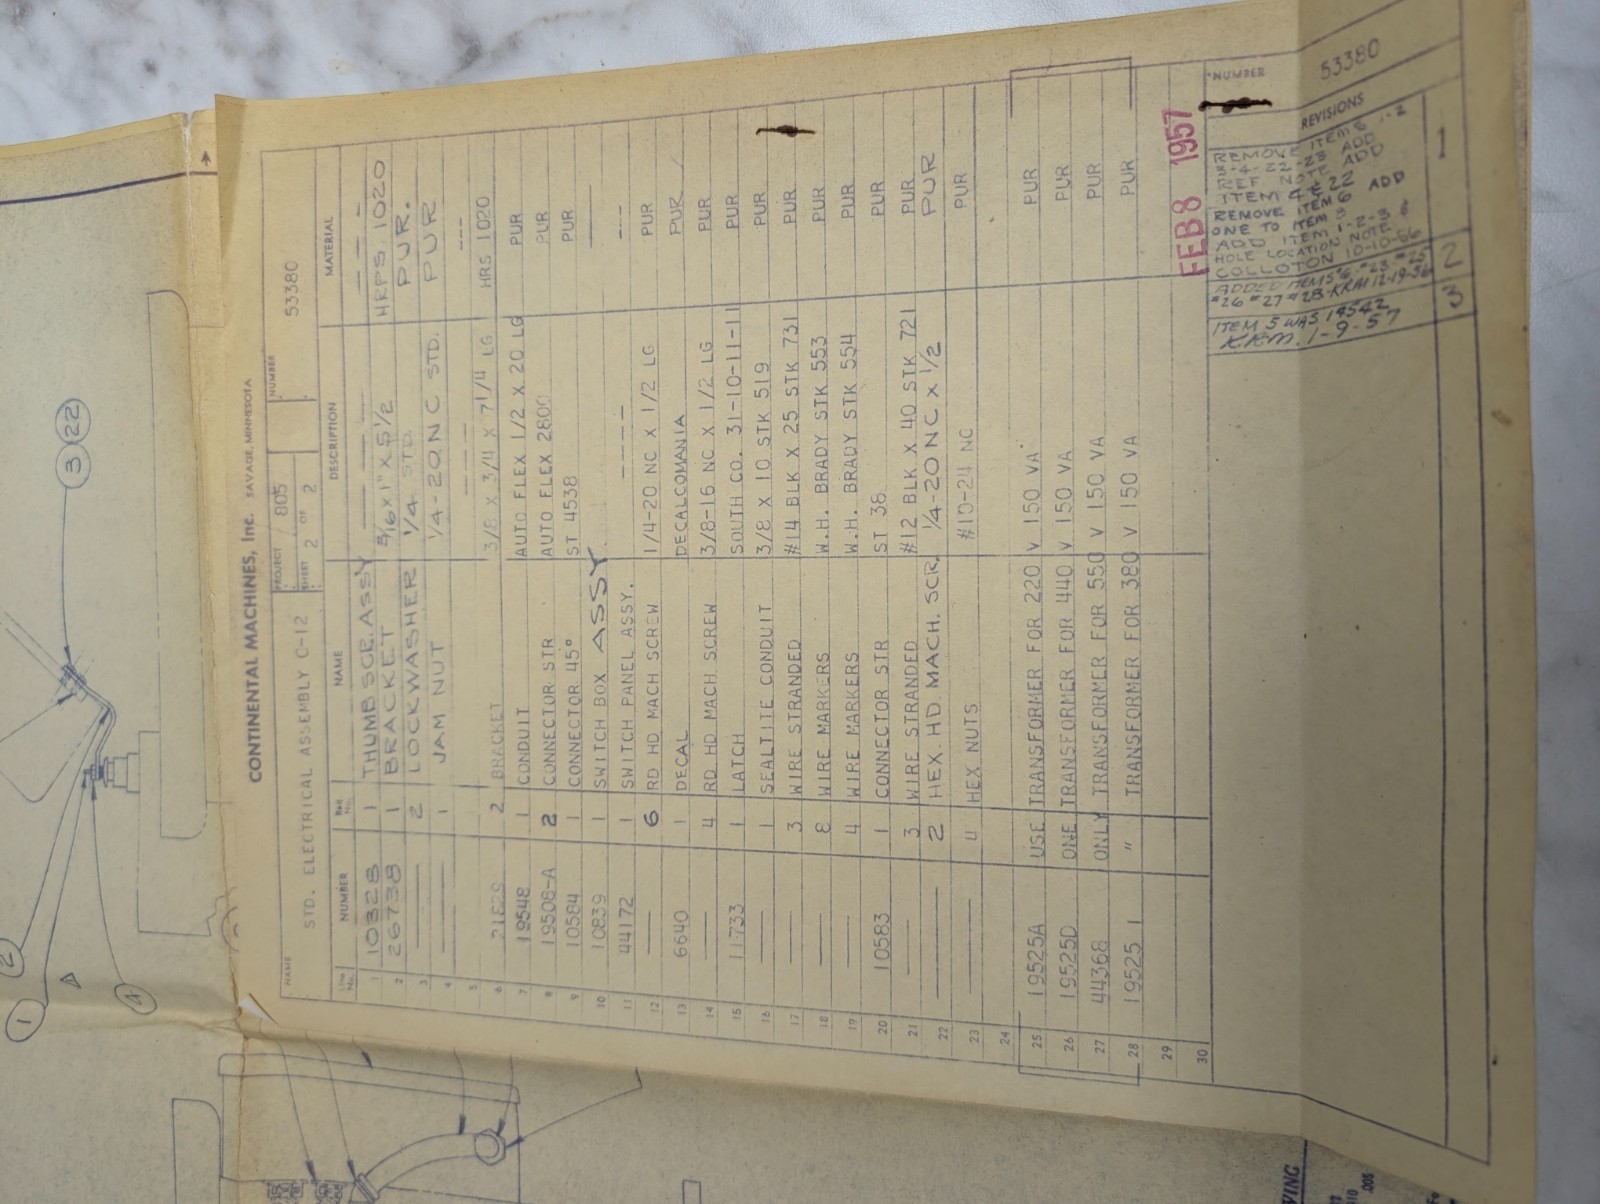 CONTINENTAL MACHINES, Inc. SAVAGE, MINNESOTA
NAME PROJECT 805 NUMBER
STD. ELECTRICAL ASSEMBLY C-12 SHEET 2 OF 2 53380
LINE No. NUMBER NAME DESCRIPTION MATERIAL
1 10328 1 THUMB SCR. ASSY — — — - - -
2 26738 1 BRACKET 5/16 X 1" X 5 1/2 HRPS. 1020
3 —— 2 LOCKWASHER 1/4 STD. PUR.
4 —— 1 JAM NUT 1/4-20 NC STD. PUR
5 - - - - - - -
6 21829 2 BRACKET 3/8 X 3/4 X 7 1/4 LG HRS 1020
7 19548 1 CONDUIT AUTO FLEX 1/2 X 20 LG PUR
8 19508-A 2 CONNECTOR STR AUTO FLEX 2800 PUR
9 10584 1 CONNECTOR 45° ST 4538 PUR
10 10839 1 SWITCH BOX ASSY. ——
11 44172 1 SWITCH PANEL ASSY. - - - - - - -
12 —— 6 RD HD MACH SCREW 1/4-20 NC X 1/2 LG PUR
13 6640 1 DECAL DECALCOMANIA PUR
14 —— 4 RD HD MACH SCREW 3/8-16 NC X 1/2 LG PUR
15 11733 1 LATCH SOUTH CO. 31-10-11-11 PUR
16 —— 1 SEALTITE CONDUIT 3/8 X 10 STK 519 PUR
17 —— 3 WIRE STRANDED #14 BLK X 25 STK 731 PUR
18 —— 8 WIRE MARKERS W.H. BRADY STK 553 PUR
19 —— 4 WIRE MARKERS W.H. BRADY STK 554 PUR
20 10583 1 CONNECTOR STR ST 38 PUR
21 —— 3 WIRE STRANDED #12 BLK X 40 STK 721 PUR
22 —— 2 HEX. HD. MACH. SCR. 1/4-20 NC X 1/2 PUR
23 —— 4 HEX NUTS #10-24 NC PUR
24
25 19525A USE TRANSFORMER FOR 220 V 150 VA PUR
26 19525D ONE TRANSFORMER FOR 440 V 150 VA PUR
27 44368 ONLY TRANSFORMER FOR 550 V 150 VA PUR
28 19525 1 " TRANSFORMER FOR 380 V 150 VA PUR
29
30
FEB 8 1957
NUMBER
53380
REVISIONS
REMOVE ITEMS 1-2
ADD
ADD
ITEM 4 & 22
REMOVE ITEM 6 ADD
ONE TO ITEM
ADD ITEM
HOLE LOCATION NOTE
COLLOTON 10-10-56
1
ADDED ITEMS
#26 #27 #28-KRM 12-19-56
2
ITEM 5 WAS 19542
K.R.M. 1-9-57
3
3 22
2
1
4